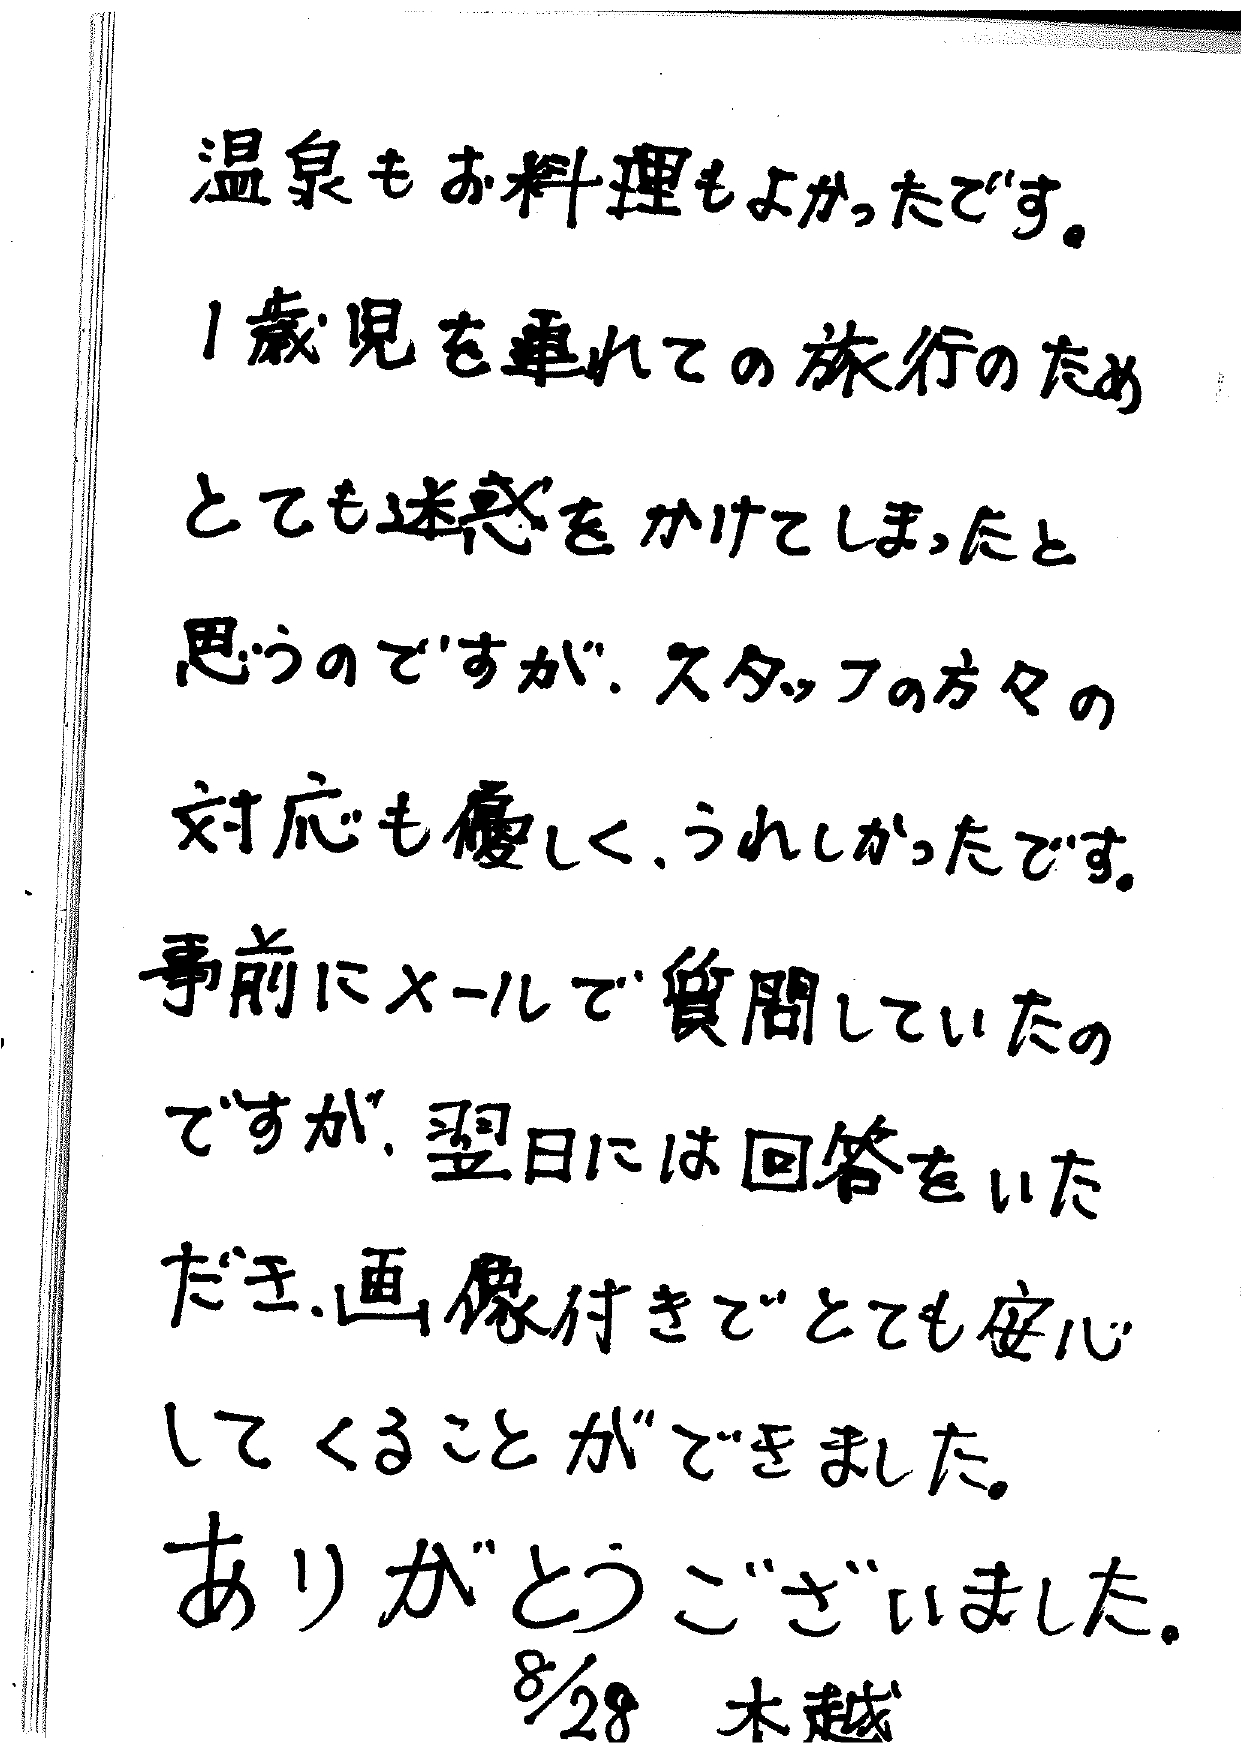 温泉もお料理もよかったです。
1歳児を連れての旅行のため
とても迷惑をかけてしまったと
思うのですが、スタッフの方々の
対応も優しく、うれしかったです。
事前にメールで質問していたの
ですが、翌日には回答をいた
だき、画像付きでとても安心
してくることができました。
ありがとうございました。
8/28 木越